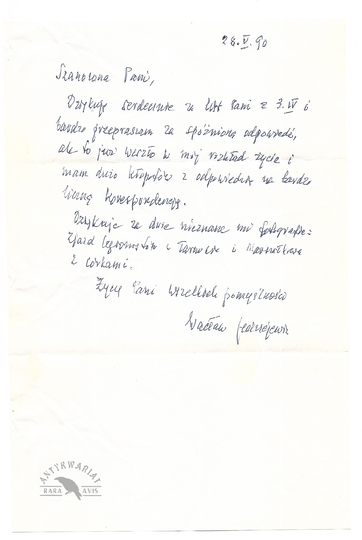 28.V.90
Szanowna Pani,
Dziękuję serdecznie za list Pani z 3.IV i
bardzo przepraszam za spóźnioną odpowiedź,
ale to już weszło w mój rozkład życia i
mam dużo kłopotów z odpowiedzią na bardzo
liczną korespondencję.
Dziękuję za dwie nieznane mi fotografie:
Zjazd Legionistów w Tarnowie i Marszałkowa
z córkami.
Życzę Pani wszelkich pomyślności
Wacław Jędrzejewicz
ANTYKWARIAT
RARA AVIS